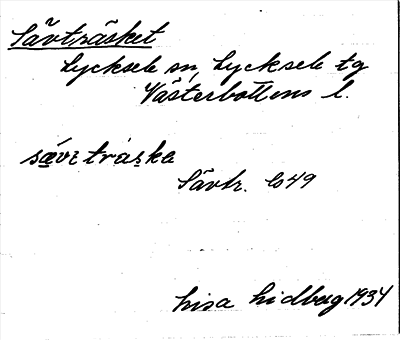 Sävträsket
Lycksele sn, Lycksele tg
Västerbottens l.
sävɩträska
Sävtr. 49
Lisa Lidberg 1934